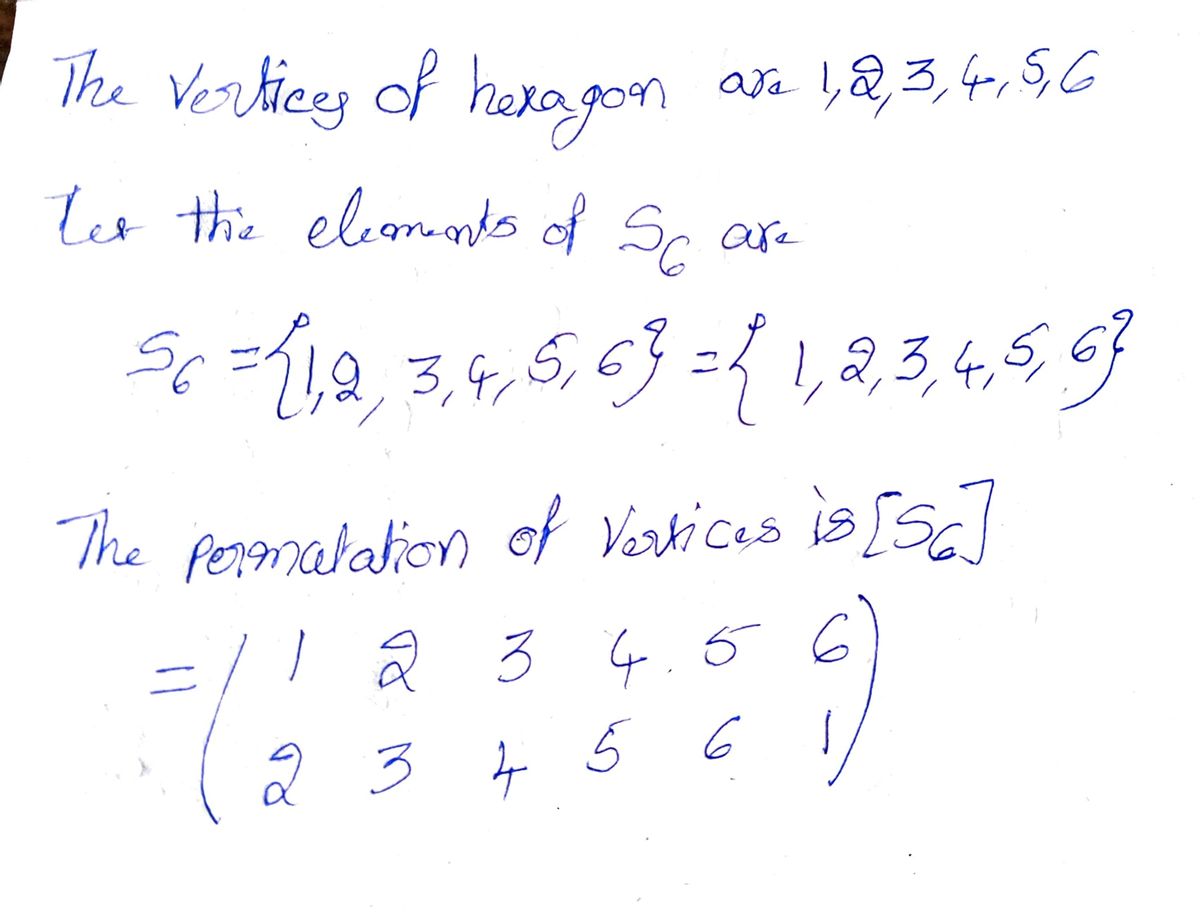 The Vertices of hexagon are 1,2,3,4,5,6
Let the elements of S6 are
S6 = {1,2,3,4,5,6} = {1,2,3,4,5,6}
The permutation of Vertices is [S6]
= ( 1 2 3 4 5 6
2 3 4 5 6 1 )